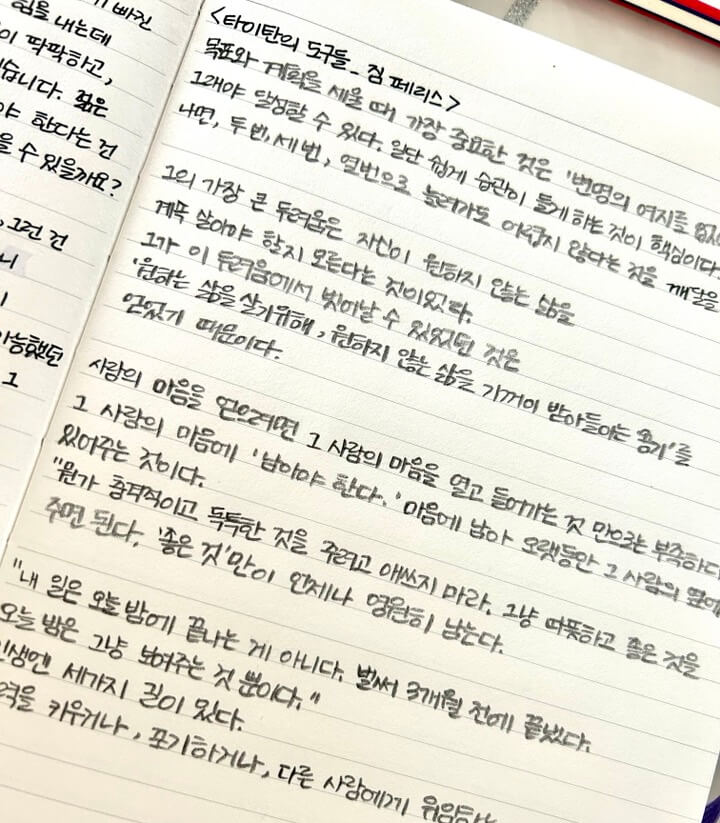 빠진
힘을 내는데
이 딱딱하고,
습니다. 젊은
야 한다는 건
을 수 있을까요?
그런 건
니
가능했던
그
<타이탄의 도구들 - 짐 페리스>
목표와 계획을 세울 때 가장 중요한 것은 '변명의 여지를 없애
그래야 달성할 수 있다. 일단 쉽게 습관이 들게 하는 것이 핵심이다.
나면, 두번, 세번, 열번으로 늘려가도 어렵지 않다는 것을 깨달을
그의 가장 큰 두려움은 자신이 원하지 않는 삶을
계속 살아야 할지 모른다는 것이었다.
그가 이 두려움에서 벗어날 수 있었던 것은
'원하는 삶을 살기위해, 원하지 않는 삶을 기꺼이 받아들이는 용기'를
얻었기 때문이다.
사람의 마음을 얻으려면 그 사람의 마음을 열고 들어가는 것 만으로는 부족하다.
그 사람의 마음에 '남아야 한다.' 마음에 남아 오랫동안 그 사람의 옆에
있어주는 것이다.
"뭔가 충격적이고 독특한 것을 주려고 애쓰지 마라. 그냥 따뜻하고 좋은 것을
주면 된다. '좋은 것'만이 언제나 영원히 남는다.
"내 일은 오늘 밤에 끝나는 게 아니다. 벌써 3개월 전에 끝났다.
오늘 밤은 그냥 보여주는 것 뿐이다."
인생엔 세가지 길이 있다.
력을 키우거나, 포기하거나, 다른 사람에게 위임하